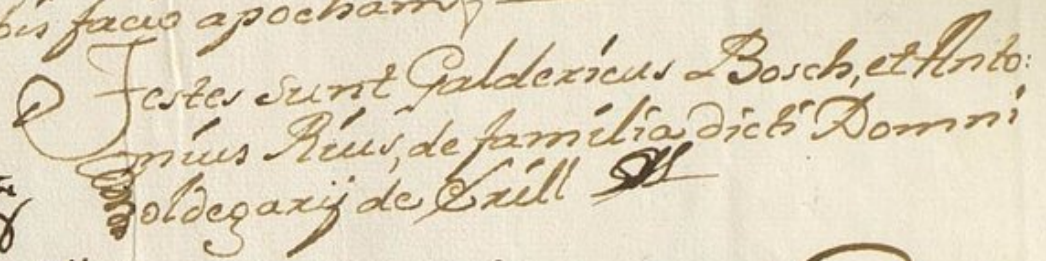 bis facio apocham
Testes sunt Galdericus Bosch, et Anto:
nius Rius, de familia dicti Domni
oldegarij de Erill